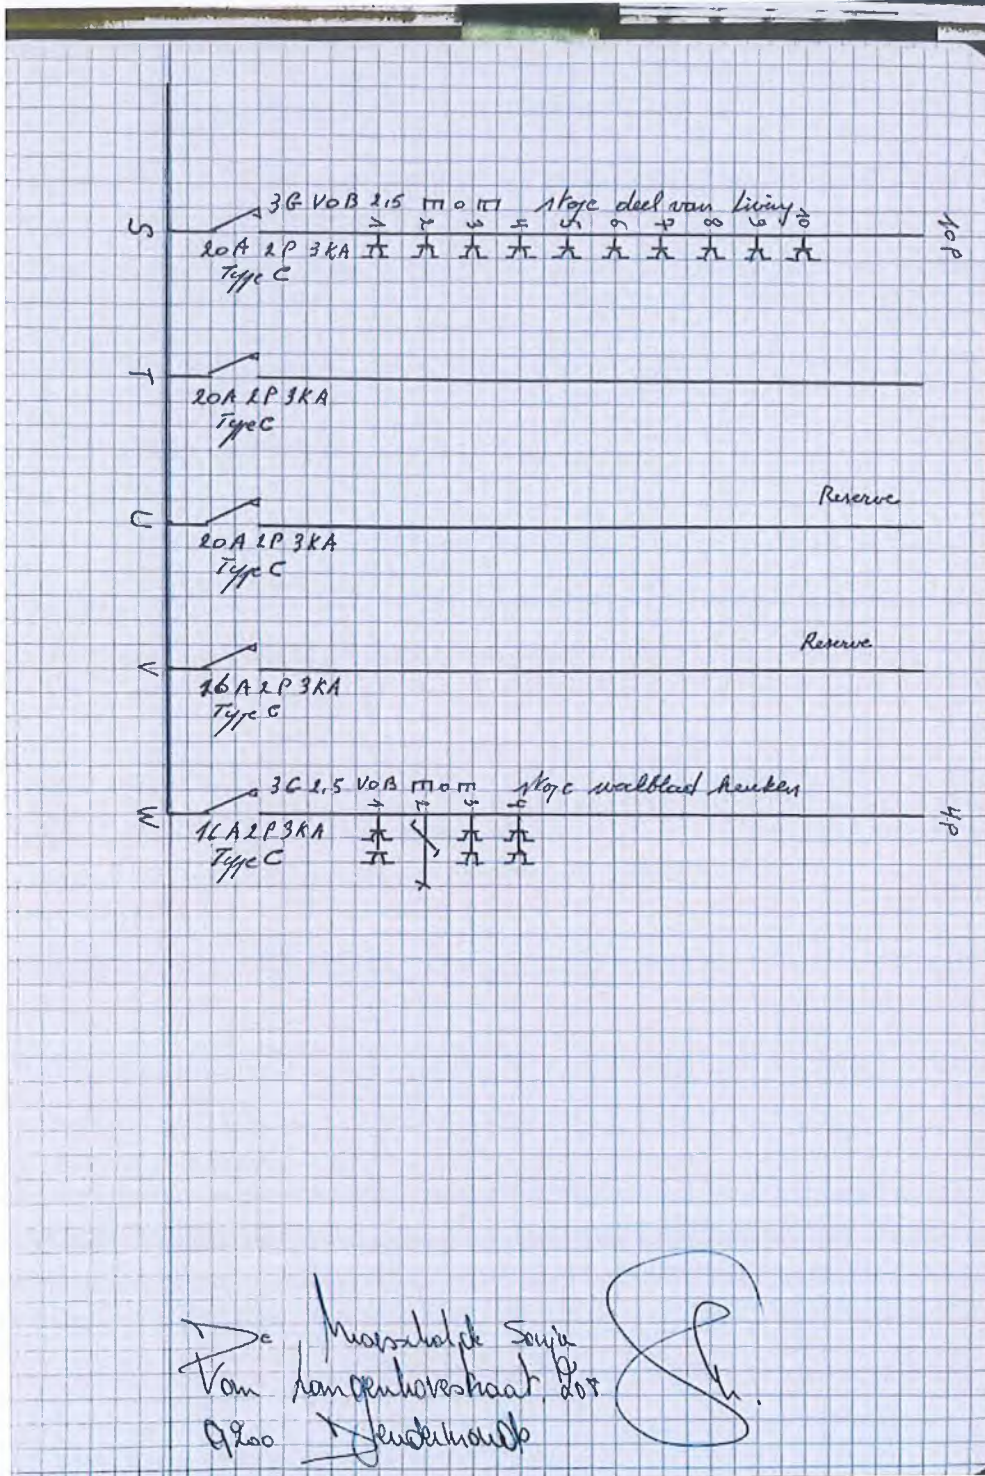 3G VOB 2,5 mom stopc deel van Living
S 1 2 3 4 5 6 7 8 9 10 10P
20A 2P 3KA
Type C
T
20A 2P 3KA
Type C
Reserve
U
20A 2P 3KA
Type C
Reserve
V
16A 2P 3KA
Type C
3G 2,5 VOB mom stopc werkblad keuken
W 1 2 3 4 4P
16A 2P 3KA
Type C
De Maesschalck Sonja
Van Langenhovestraat
9200 Dendermonde